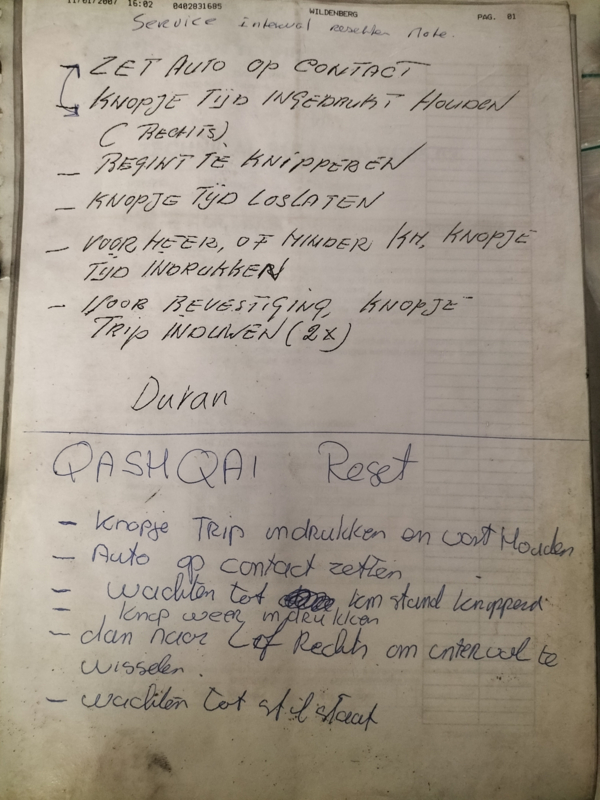 11/01/2007 16:02 0402031605 WILDENBERG PAG. 01
Service interval resetten Note.
ZET AUTO OP CONTACT
KNOPJE TIJD INGEDRUKT HOUDEN
(RECHTS)
– BEGINT TE KNIPPEREN
– KNOPJE TIJD LOSLATEN
– VOOR MEER, OF MINDER KM, KNOPJE
TIJD INDRUKKEN
– VOOR BEVESTIGING, KNOPJE
TRIP INDUWEN (2x)
Duran
QASHQAI Reset
– Knopje Trip indrukken en vast Houden
– Auto op contact zetten
– wachten tot km stand knipperd
– knop weer indrukken
– dan naar L of Rechts om interval te
wisselen.
– wachten tot stil staat